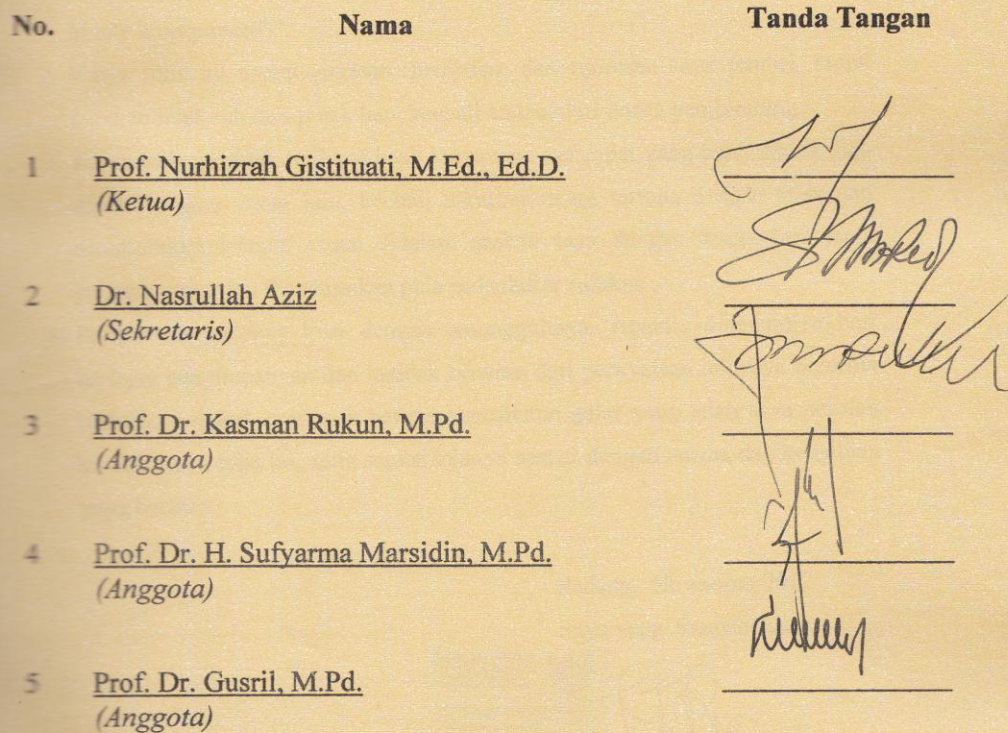 No. Nama Tanda Tangan
1 Prof. Nurhizrah Gistituati, M.Ed., Ed.D.
(Ketua)
2 Dr. Nasrullah Aziz
(Sekretaris)
3 Prof. Dr. Kasman Rukun, M.Pd.
(Anggota)
4 Prof. Dr. H. Sufyarma Marsidin, M.Pd.
(Anggota)
5 Prof. Dr. Gusril, M.Pd.
(Anggota)